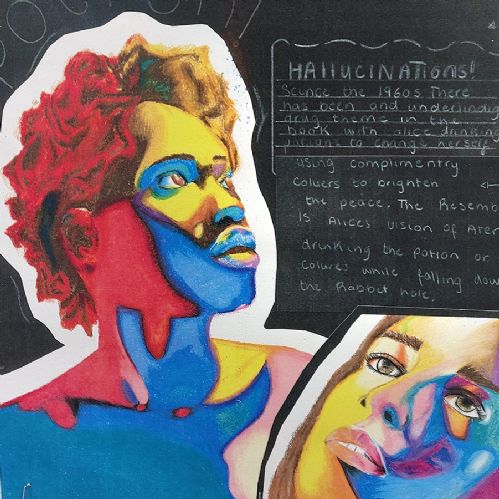 HAllUCINATIONS!
Scince the 1960s There
has been and underlinding
drug theme in the
book with alice drinking
potions to change herself
using complimentry
coluers to brighten
the peace. The Resemb
is Alices vision of After
drinking the potion or
colures while falling dow
the Rabbit hole.